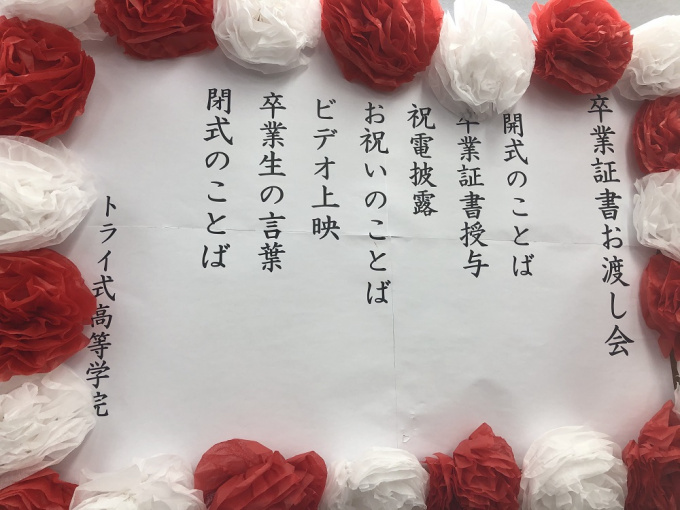 卒業証書お渡し会
開式のことば
卒業証書授与
祝電披露
お祝いのことば
ビデオ上映
卒業生の言葉
閉式のことば
トライ式高等学院